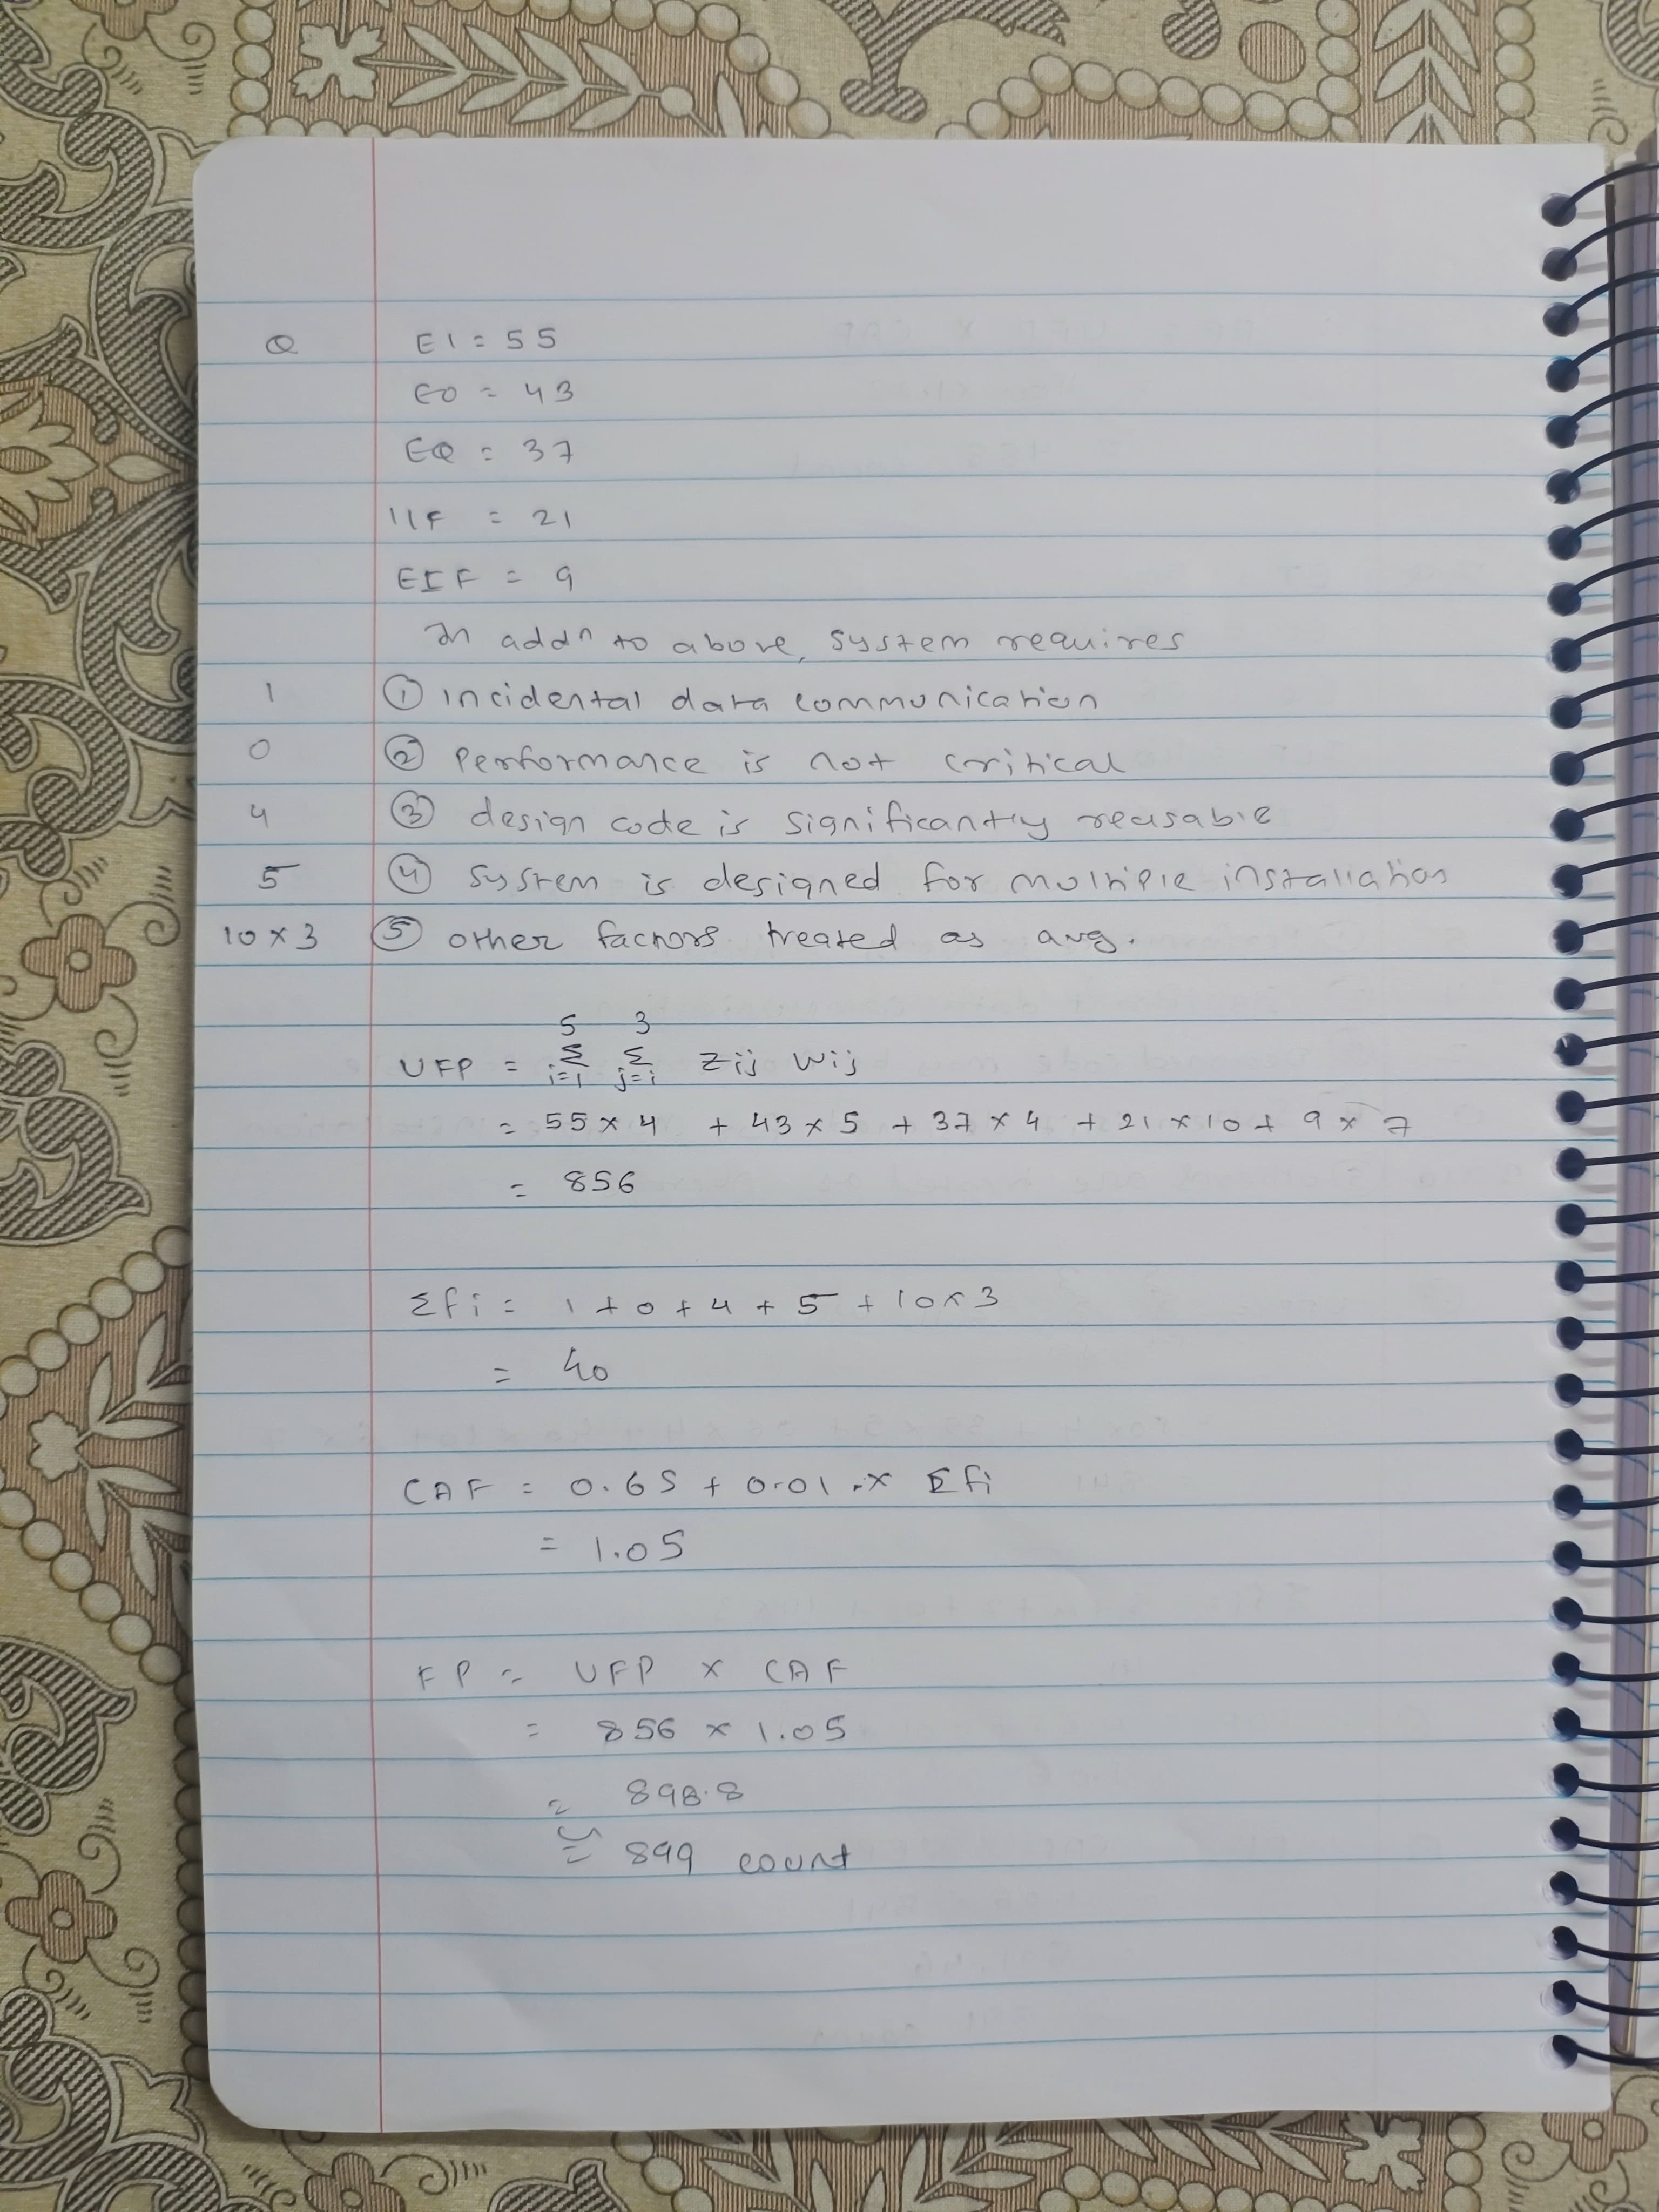 Q EI = 55
EO = 43
EQ = 37
IIF = 21
EIF = 9
In addn to above, system requires
1 ① incidental data communication
0 ② performance is not critical
4 ③ design code is significantly reusable
5 ④ system is designed for multiple installations
10 x 3 ⑤ other factors treated as avg.
5 3
UFP = Σ Σ Zij Wij
i=1 j=i
= 55 x 4 + 43 x 5 + 37 x 4 + 21 x 10 + 9 x 7
= 856
Σfi = 1 + 0 + 4 + 5 + 10 x 3
= 40
CAF = 0.65 + 0.01 x Σfi
= 1.05
FP = UFP x CAF
= 856 x 1.05
= 898.8
≅ 899 count